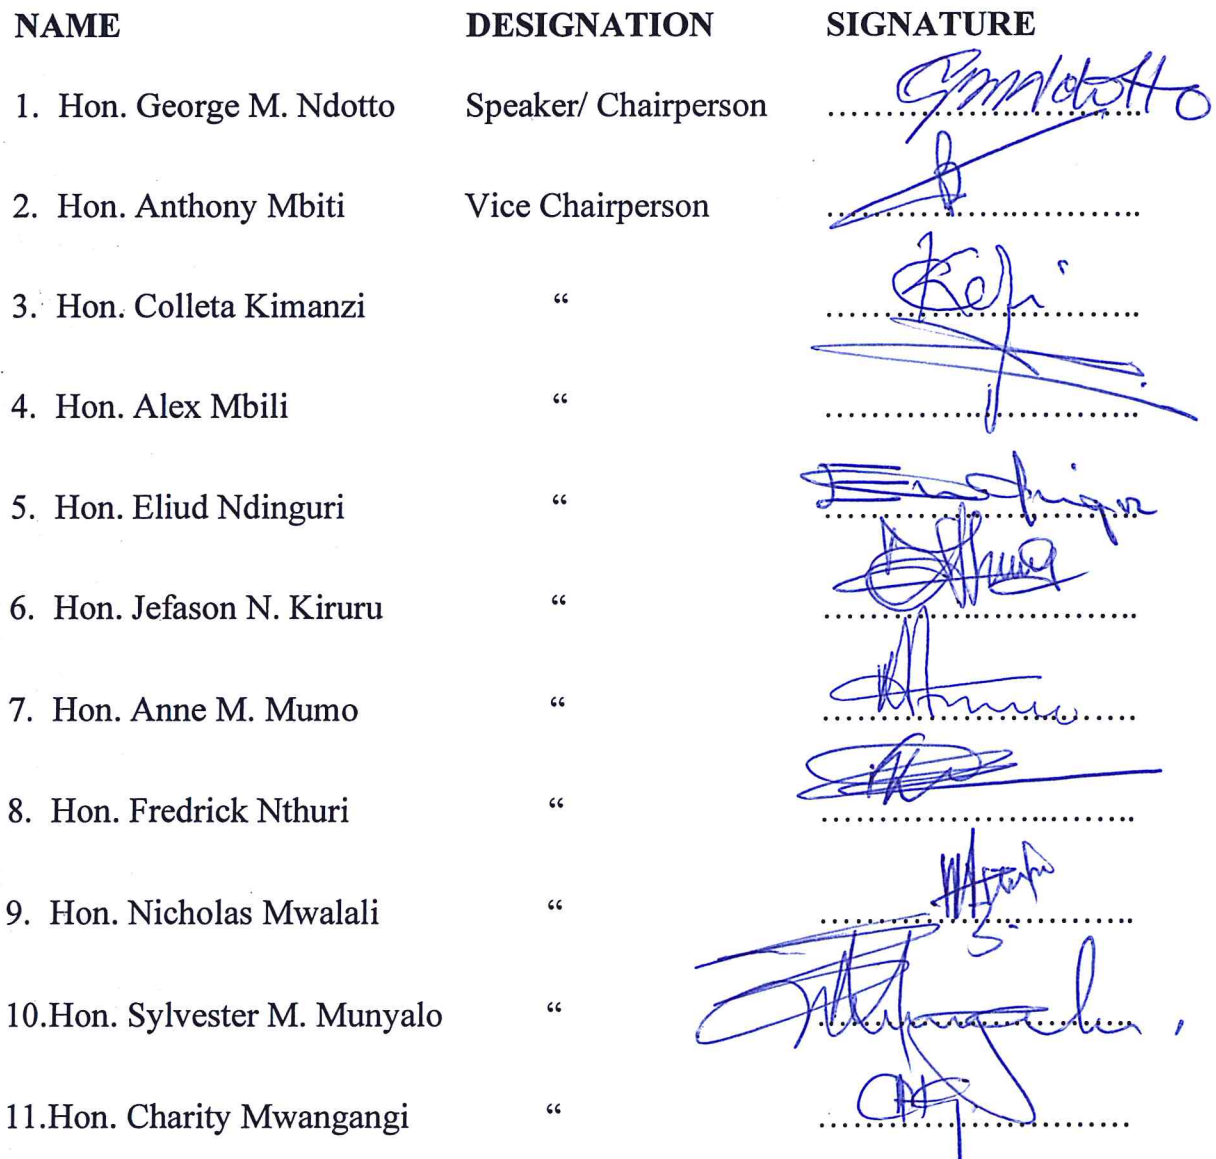 NAME DESIGNATION SIGNATURE
1. Hon. George M. Ndotto Speaker/ Chairperson ................................
2. Hon. Anthony Mbiti Vice Chairperson ................................
3. Hon. Colleta Kimanzi “ ................................
4. Hon. Alex Mbili “ ................................
5. Hon. Eliud Ndinguri “ ................................
6. Hon. Jefason N. Kiruru “ ................................
7. Hon. Anne M. Mumo “ ................................
8. Hon. Fredrick Nthuri “ ................................
9. Hon. Nicholas Mwalali “ ................................
10.Hon. Sylvester M. Munyalo “ ................................
11.Hon. Charity Mwangangi “ ................................